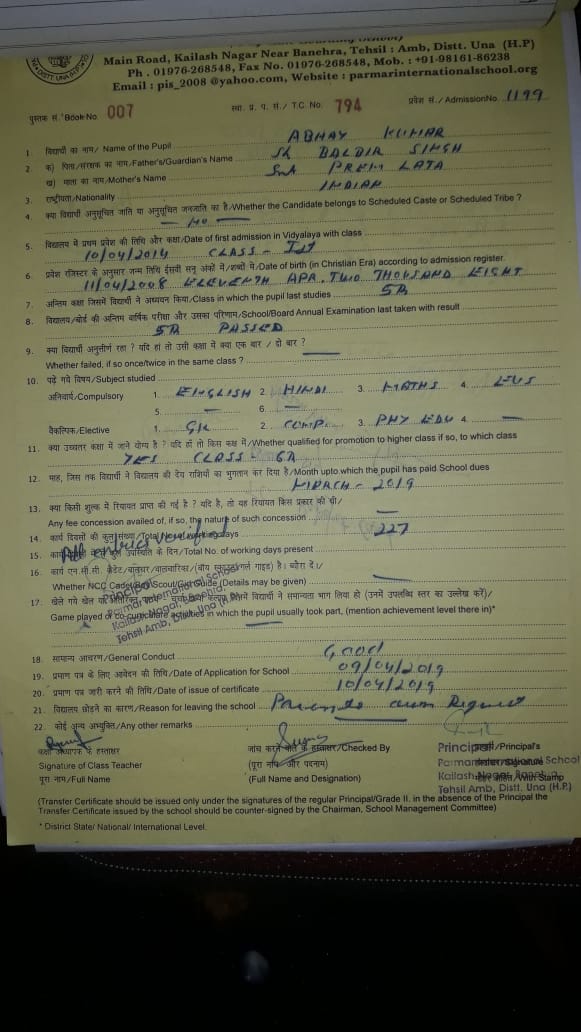 Main Road, Kailash Nagar Near Banehra, Tehsil : Amb, Distt. Una (H.P)
Ph . 01976-268548, Fax No. 01976-268548, Mob. : +91-98161-86238
Email : pis_2008 @yahoo.com, Website : parmarinternationalschool.org
पुस्तक सं. Book No 007 स्था. प्र. प. सं./ T.C. No. 794 प्रवेश सं./ AdmissionNo. 1199
1. विद्यार्थी का नाम/ Name of the Pupil ABHAY KUMAR
2. क) पिता/संरक्षक का नाम/Father's/Guardian's Name Sh BALDIR SINGH
ख) माता का नाम/Mother's Name Smt PREM LATA
3. राष्ट्रीयता/Nationality INDIAN
4. क्या विद्यार्थी अनुसूचित जाति या अनुसूचित जनजाति का है/Whether the Candidate belongs to Scheduled Caste or Scheduled Tribe ?
— NO —
5. विद्यालय में प्रथम प्रवेश की तिथि और कक्षा/Date of first admission in Vidyalaya with class
10/04/2014 CLASS - Ist
6. प्रवेश रजिस्टर के अनुसार जन्म तिथि ईसवी सन् अंकों में/शब्दों में/Date of birth (in Christian Era) according to admission register.
11/04/2008 ELEVENTH APR. TWO THOUSAND EIGHT
7. अन्तिम कक्षा जिसमें विद्यार्थी ने अध्ययन किया/Class in which the pupil last studies 5th
8. विद्यालय/बोर्ड की अन्तिम वार्षिक परीक्षा और उसका परिणाम/School/Board Annual Examination last taken with result
5th PASSED
9. क्या विद्यार्थी अनुत्तीर्ण रहा ? यदि हां तो उसी कक्षा में क्या एक बार / दो बार ? —
Whether failed, if so once/twice in the same class ?
10. पढ़े गये विषय/Subject studied
अनिवार्य/Compulsory 1. ENGLISH 2. HINDI 3. MATHS 4. EVS
5. — 6. —
वैकल्पिक/Elective 1. GK 2. COMP. 3. PHY EDU 4. —
11. क्या उच्चतर कक्षा में जाने योग्य है ? यदि हाँ तो किस कक्ष में/Whether qualified for promotion to higher class if so, to which class
YES CLASS - 6th
12. माह, जिस तक विद्यार्थी ने विद्यालय की देय राशियों का भुगतान कर दिया है/Month upto which the pupil has paid School dues
MARCH - 2019
13. क्या किसी शुल्क में रियायत प्राप्त की गई है ? यदि है, तो वह रियायत किस प्रकार की थी/
Any fee concession availed of, if so, the nature of such concession —
14. कार्य दिवसों की कुल संख्या/Total No. of working days 227
15. उपस्थिति के दिन/Total No. of working days present
All entries verified
16. Whether NCC Cadet/Boy Scout/Girl Guide (Details may be given) —
17. Game played or co-curriculare activities in which the pupil usually took part, (mention achievement level there in)*
Principal
Parmar International School
Kailash Nagar, Banehra,
Tehsil Amb, Distt. Una (H.P.)
18. सामान्य आचरण/General Conduct Good
19. प्रमाण पत्र के लिए आवेदन की तिथि/Date of Application for School 09/04/2019
20. प्रमाण पत्र जारी करने की तिथि/Date of issue of certificate 10/04/2019
21. विद्यालय छोड़ने का कारण/Reason for leaving the school Parents own Request
22. कोई अन्य अभ्युक्ति/Any other remarks —
कक्षा अध्यापक के हस्ताक्षर जांच करने वाले के हस्ताक्षर/Checked By Principal /Principal's
Signature of Class Teacher (पूरा नाम और पदनाम) Parmar International School
पूरा नाम/Full Name (Full Name and Designation) Kailash Nagar, With Stamp
Tehsil Amb, Distt. Una (H.P.)
(Transfer Certificate should be issued only under the signatures of the regular Principal/Grade II. in the absence of the Principal the
Transfer Certificate issued by the school should be counter-signed by the Chairman, School Management Committee)
* District State/ National/ International Level.